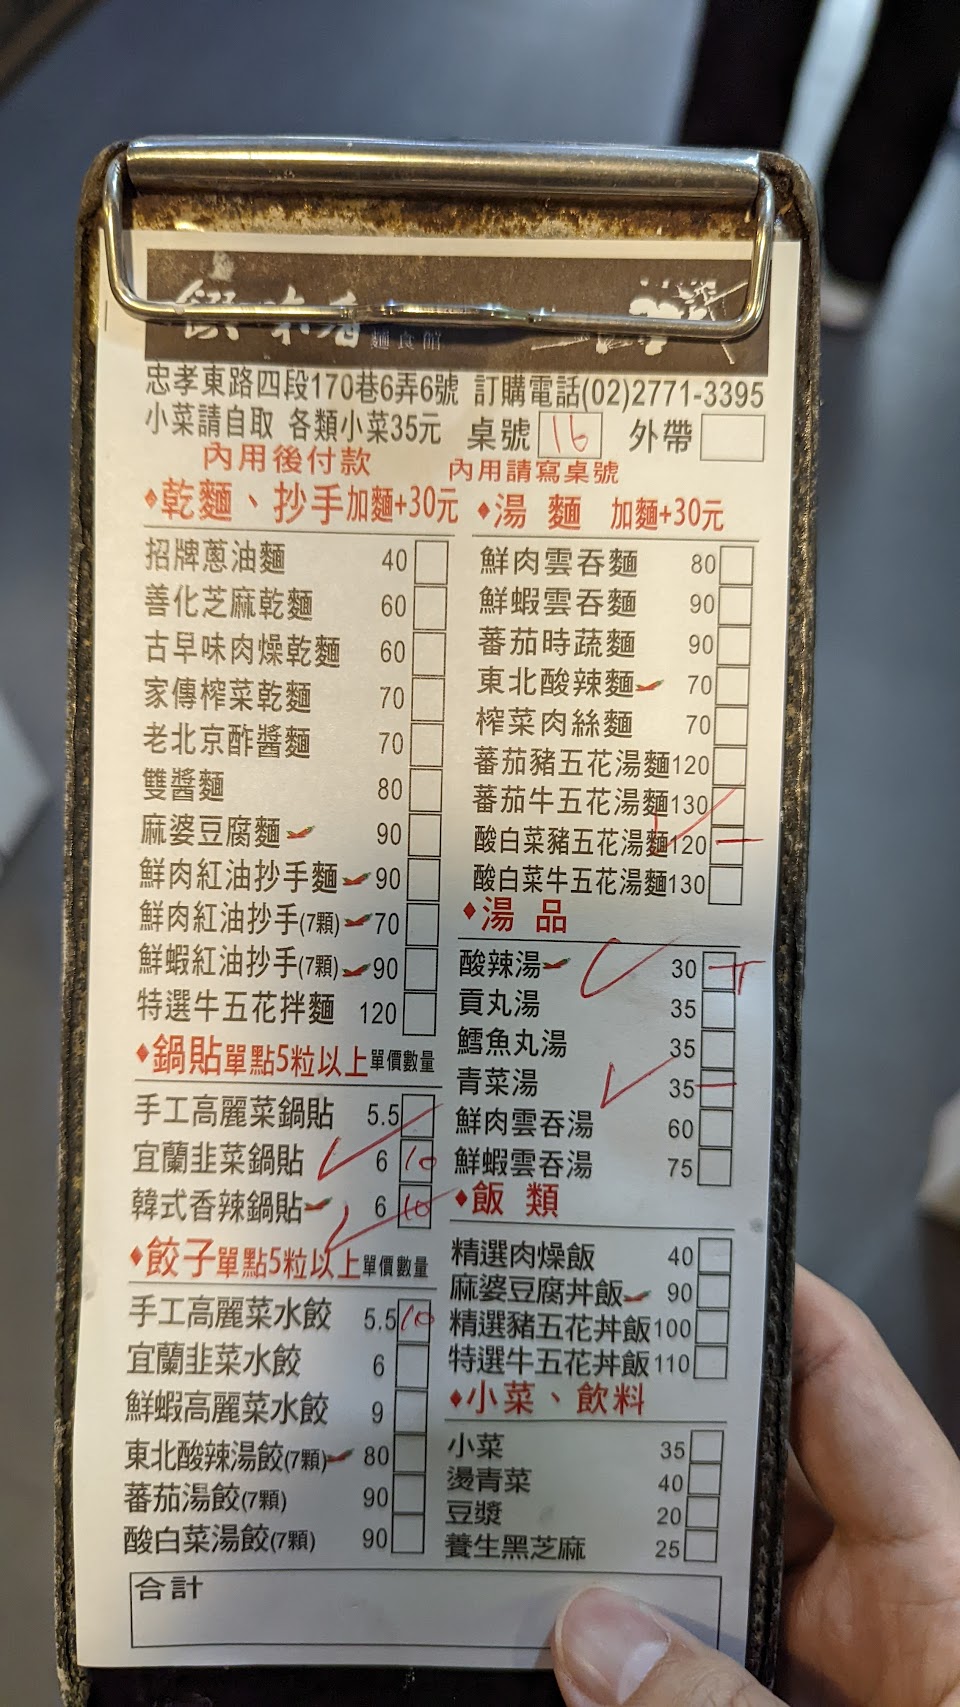 麵食館
忠孝東路四段170巷6弄6號 訂購電話(02)2771-3395
小菜請自取 各類小菜35元 桌號 16 外帶
內用後付款 內用請寫桌號
乾麵、抄手加麵+30元
招牌蔥油麵 40
善化芝麻乾麵 60
古早味肉燥乾麵 60
家傳榨菜乾麵 70
老北京酢醬麵 70
雙醬麵 80
麻婆豆腐麵 90
鮮肉紅油抄手麵 90
鮮肉紅油抄手(7顆) 70
鮮蝦紅油抄手(7顆) 90
特選牛五花拌麵 120
鍋貼單點5粒以上單價數量
手工高麗菜鍋貼 5.5
宜蘭韭菜鍋貼 6 10
韓式香辣鍋貼 6 10
餃子單點5粒以上單價數量
手工高麗菜水餃 5.5 10
宜蘭韭菜水餃 6
鮮蝦高麗菜水餃 9
東北酸辣湯餃(7顆) 80
蕃茄湯餃(7顆) 90
酸白菜湯餃(7顆) 90
湯 麵 加麵+30元
鮮肉雲吞麵 80
鮮蝦雲吞麵 90
蕃茄時蔬麵 90
東北酸辣麵 70
榨菜肉絲麵 70
蕃茄豬五花湯麵120
蕃茄牛五花湯麵130
酸白菜豬五花湯麵120 一
酸白菜牛五花湯麵130
湯 品
酸辣湯 30 丅
貢丸湯 35
鱈魚丸湯 35
青菜湯 35 一
鮮肉雲吞湯 60
鮮蝦雲吞湯 75
飯 類
精選肉燥飯 40
麻婆豆腐丼飯 90
精選豬五花丼飯100
特選牛五花丼飯110
小菜、飲料
小菜 35
燙青菜 40
豆漿 20
養生黑芝麻 25
合計